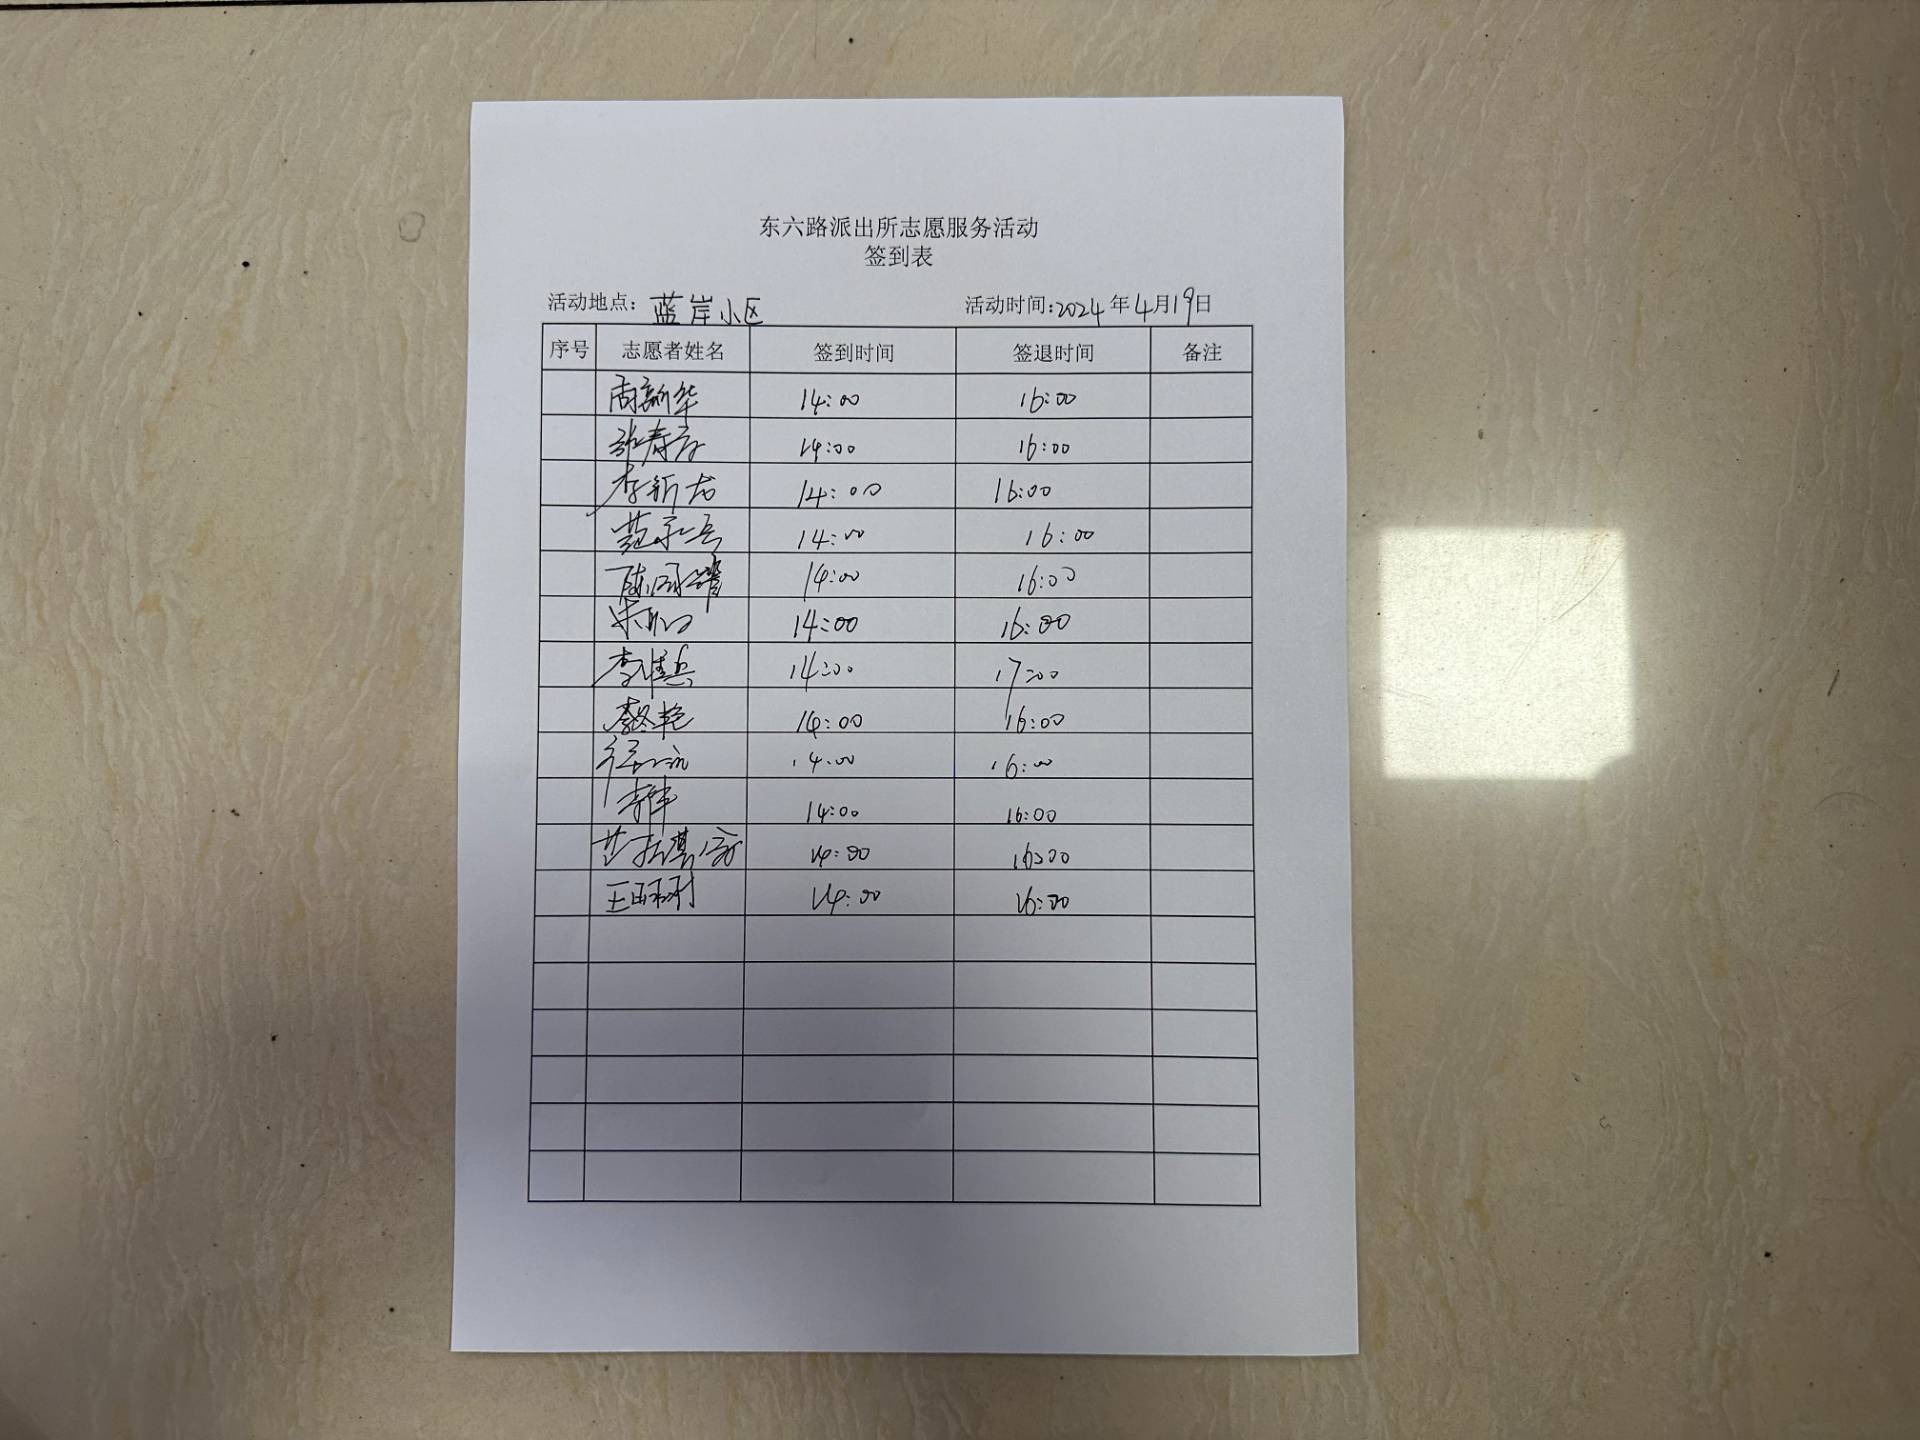 东六路派出所志愿服务活动
签到表
活动地点：蓝岸小区 活动时间：2024年4月19日
序号 志愿者姓名 签到时间 签退时间 备注
周新华 14:00 16:00
14:00 16:00
李新龙 14:00 16:00
14:00 16:00
14:00 16:00
14:00 16:00
14:00 17:00
14:00 16:00
14:00 16:00
李伟 14:00 16:00
14:00 16:00
14:00 16:00